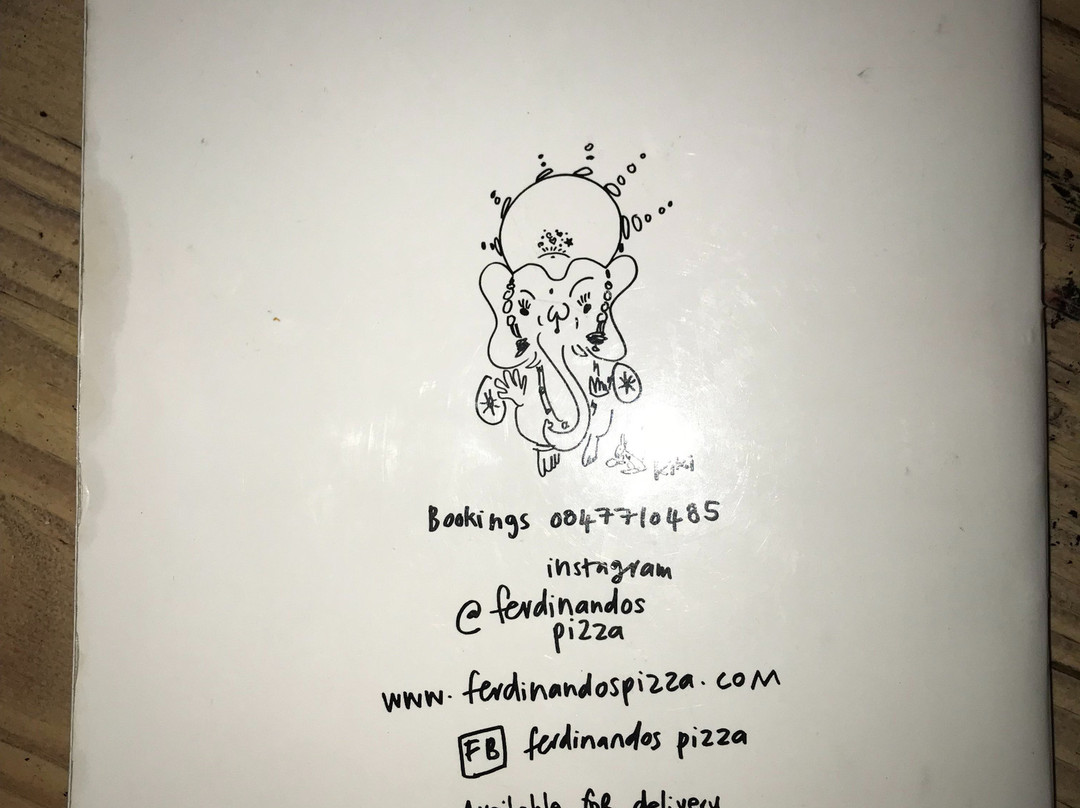 KiKi
Bookings 0847710485
instagram
@ferdinandos
pizza
www.ferdinandospizza.com
FB ferdinandos pizza
Available for delivery